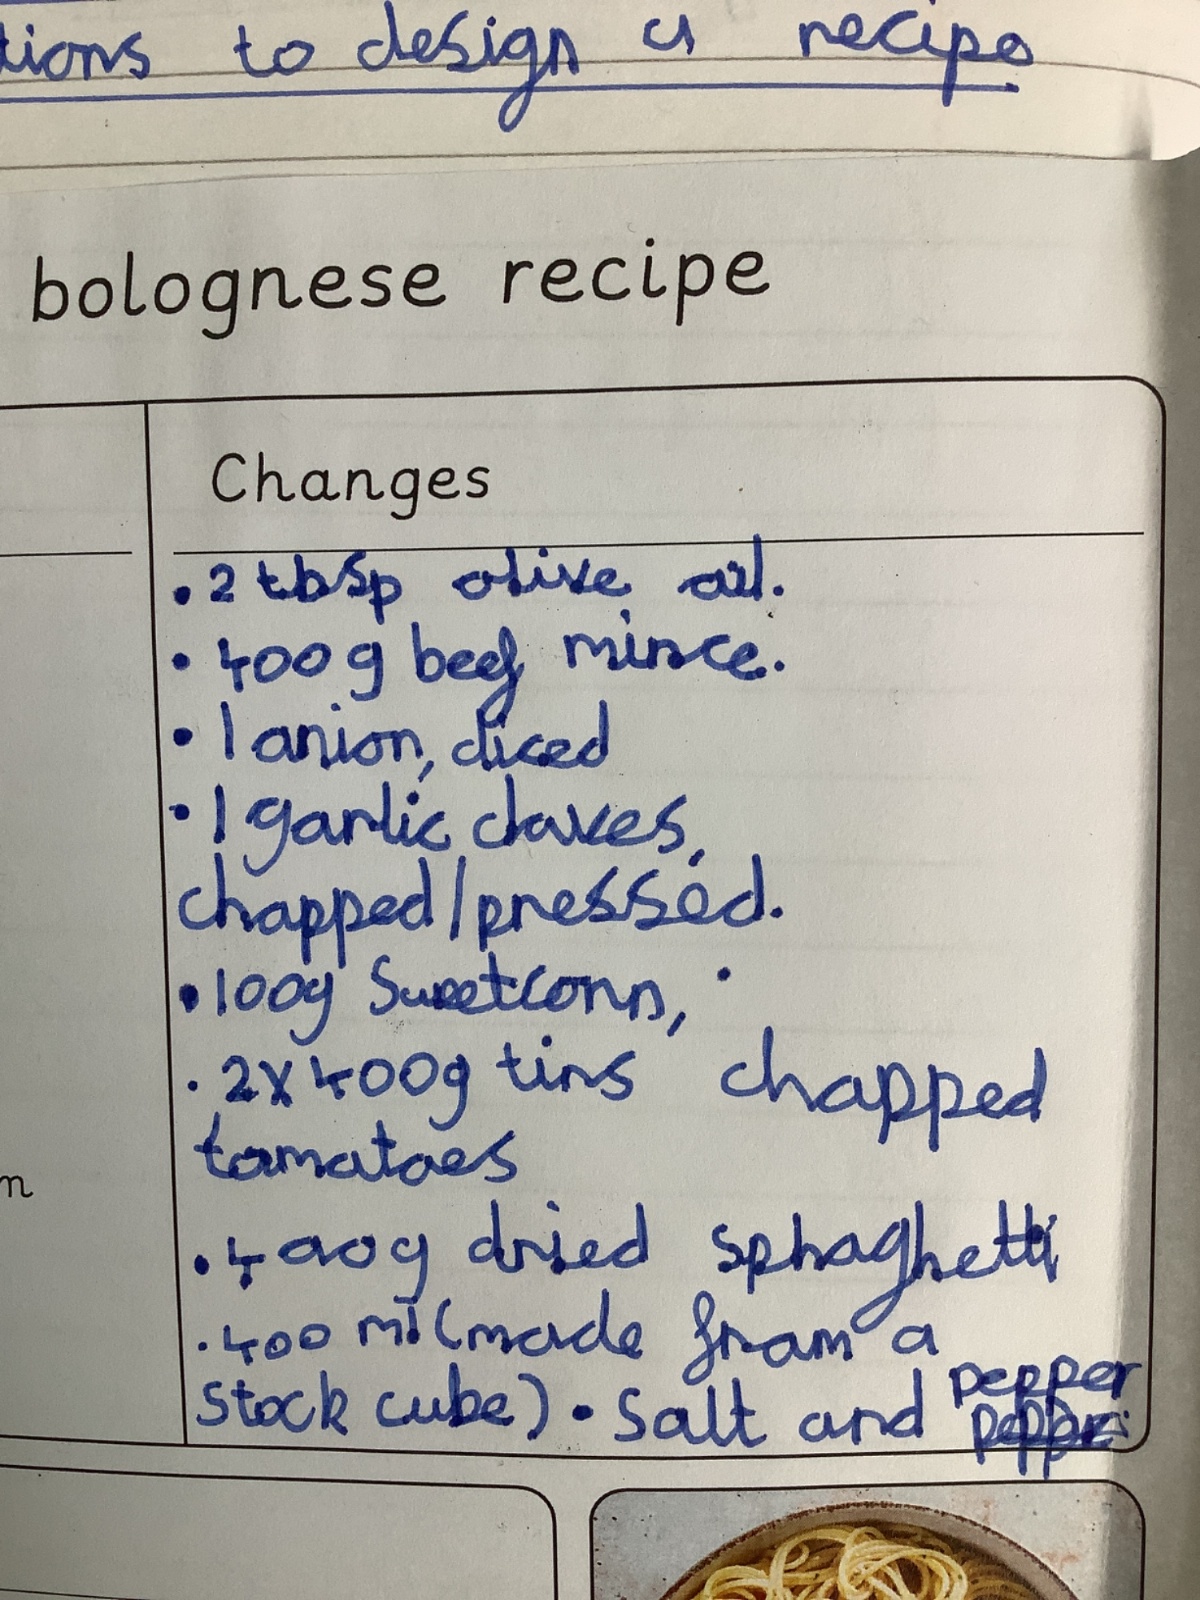 tions to design a recipe
bolognese recipe
Changes
• 2 tbsp olive oil.
• 400g beef mince.
• 1 onion, diced
• 1 garlic cloves,
chopped/pressed.
• 100g Sweetcorn,
• 2x400g tins chopped
tomatoes
n
• 400g dried sphaghetti
• 400 ml (made from a
stock cube) • Salt and pepper